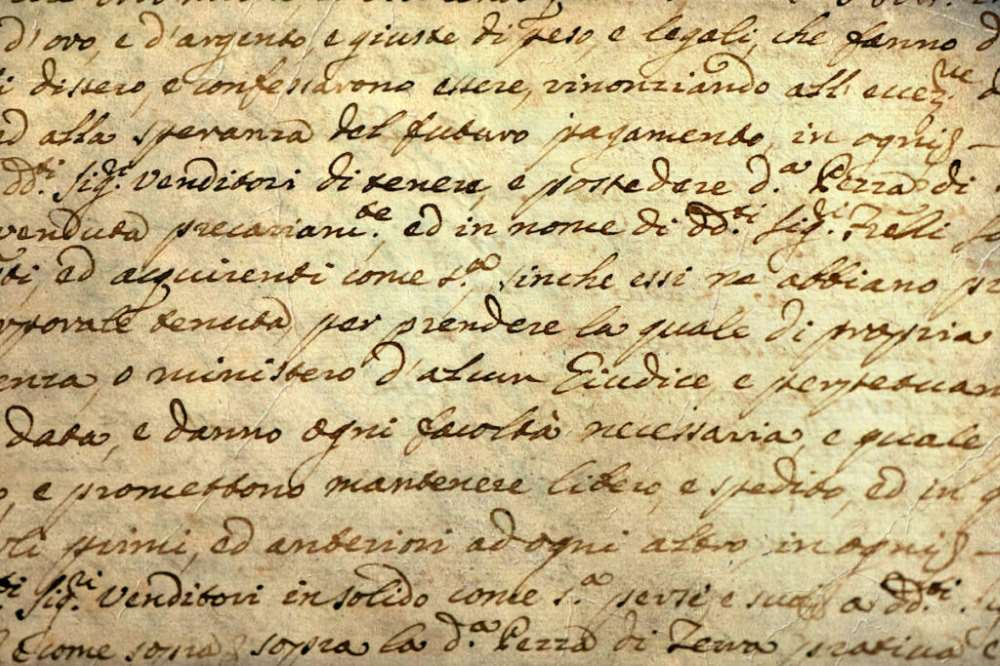 d'oro, e d'argento, e giuste di peso, e legali, che fanno
dissero, e confessarono essere, rinonziando all' eccez.ne
ed alla speranza del futuro pagamento, in ogni
dd.ti Sig.ri Venditori di tenere, e possedere d.a Pezza di
venduta precariam.te, ed in nome di dd.ti Sig.ri Frelli
ed acquirenti come s.a, sinche essi ne abbiano
corporale tenuta per prendere la quale di propria
o ministero d'alcun Giudice, e perpetuam
data, e danno ogni facoltà necessaria, e quale
e promettono mantenere libero, e spedito, ed in
primi, ed anteriori ad ogni altro in ogni
Sig.ri Venditori in solido come s.a per se e suoi a dd.ti
e come sopra sopra la d.a Pezza di Terra prativa